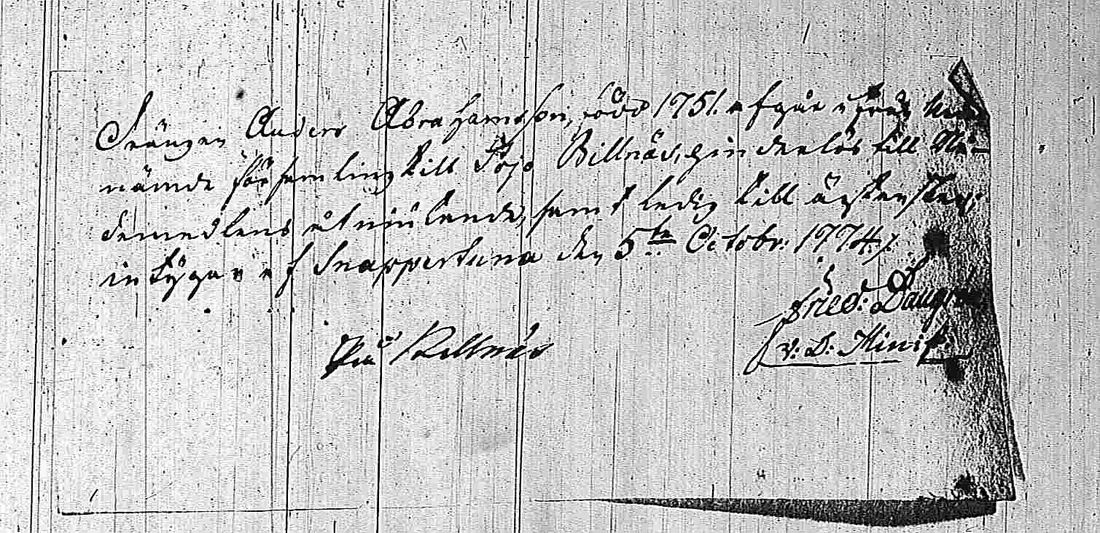 Drängen Anders Abrahamsson, född 1751. afgår ifrån ned-
nämde församling till Pojo Billnäs, hinderlös till Na-
demedlens åtniutande, samt ledig till äktenskap;
intygar af Snappertuna den 5te Octobr: 1774,
Fred:
v: D: Minist.
Billnäs